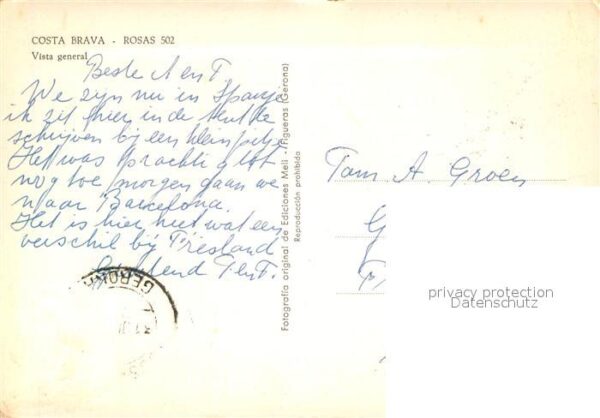 COSTA BRAVA - ROSAS 502
Vista general
Beste A en T.
We zijn nu in Spanje
ik zit hier in de
schrijven bij een klein
Het was prachtig tot
nog toe, morgen gaan we
naar Barcelona.
Het is hier heet wat een
verschil bij Friesland
T en F.
GERONA
Fotografía original de Ediciones Meli - Figueras (Gerona)
Reproducción prohibida
Fam A. Groen
G
F
privacy protection
Datenschutz